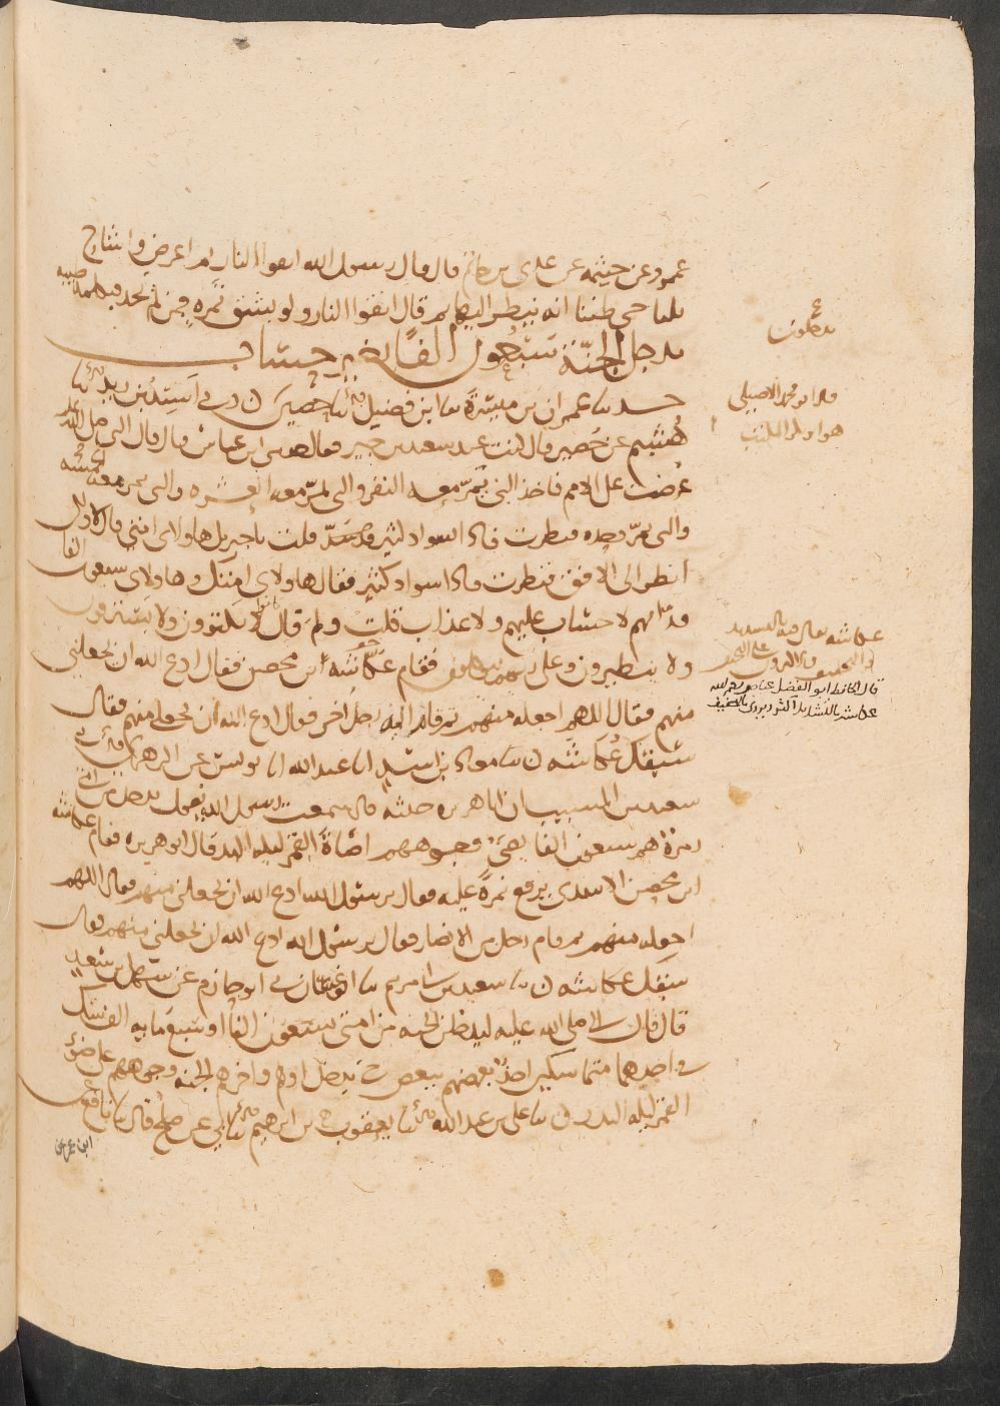 عمرو عن خيثمة عن عدى بن حاتم قال قال رسول الله اتقوا النار ثم اعرض واشاح
ثلثا حتى ظننا انه ينظر اليها ثم قال اتقوا النار ولو بشق تمره فمن لم يجد فبكلمه طيبه
يدخل الجنة سبعون الفا بغير حساب
حدثنا عمران بن ميسرة نا ابن فضيل نا حصين ن وني أسيد بن زيد نا
هشيم عن حُصين قال كنت عند سعيد بن جبير فقال حدثني ابن عباس قال قال النبى صلى الله عليه
عُرضت على الامم فاخذ النبى يمرّ معه النفر والنبى يمرّ معه العشره والنبى يمر معه خمسه
والنبى يمرّ وحده فنظرت فاذا سواد كثير قلت يا جبريل هاولاى امتى قال لا ولكن
انظر الى الافق فنظرت فاذا سواد كثير فقال هاولاى امتك وهاولاى سبعون الفا
قدامهم لا حساب عليهم ولا عذاب قلت ولم قال كانوا لا يكتوون ولا يسترقون
ولا يتطيرون وعلى ربهم يتوكلون فقام عكّاشَه ابن محصن فقال ادع الله ان يجعلنى
منهم فقال اللهم اجعله منهم ثم قام اليه رجل اخر فقال ادع الله ان يجعلنى منهم فقال
سبقك عُكاشه ن نا معاذ بن اسد انا عبد الله انا يونس عن الزهرى
سعيد بن المسيب ان ابا هريره حدثه قال سمعت رسول الله يقول يدخل من امتى
زمرة هم سبعون الفا تضى وجوههم اضاة القمر ليله البدر قال ابو هريره فقام عكاشه
ابن محصن الاسدى يرفع نمرةً عليه فقال يرسول الله ادع الله ان يجعلنى منهم فقال اللهم
اجعله منهم ثم قام رجل من الانصار فقال يرسول الله ادع الله ان يجعلنى منهم فقال
سبقك عكاشه ن نا سعيد بن ابى مريم نا ابو غسان نى ابو حازم عن سهل بن سعد
قال قال النبى صلى الله عليه ليدخلن الجنه من امتى سبعون الفا او سبع مايه الف شك
فى احدهما متماسكين اخذ بعضهم ببعض حتى يدخل اولهم واخرهم الجنه وجوههم على ضوء
القمر ليله البدر ن نا على بن عبد الله نا يعقوب بن ابرهيم نا ابى عن صلح قال نا نافع
ابن عمر عن
قال ابو محمد الاصيلى
عكاشه يقال فيه بالتشديد
قال الحافظ ابو الفضل عياض رحمه الله
عكاشه بالتشديد اكثر ويروى بالتخفيف